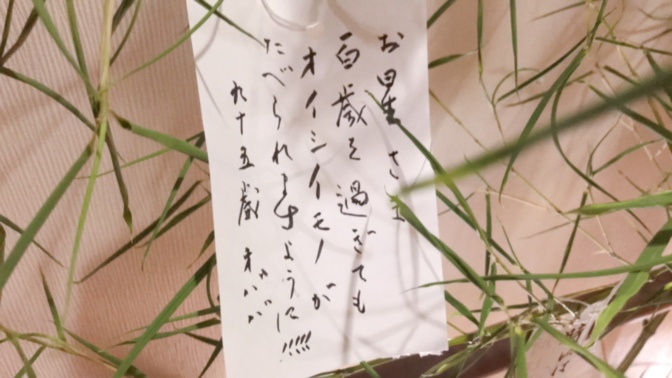 お星さま
百歳を過ぎても
オイシイモノが
たべられますように!!!!!
九十五歳 オババ